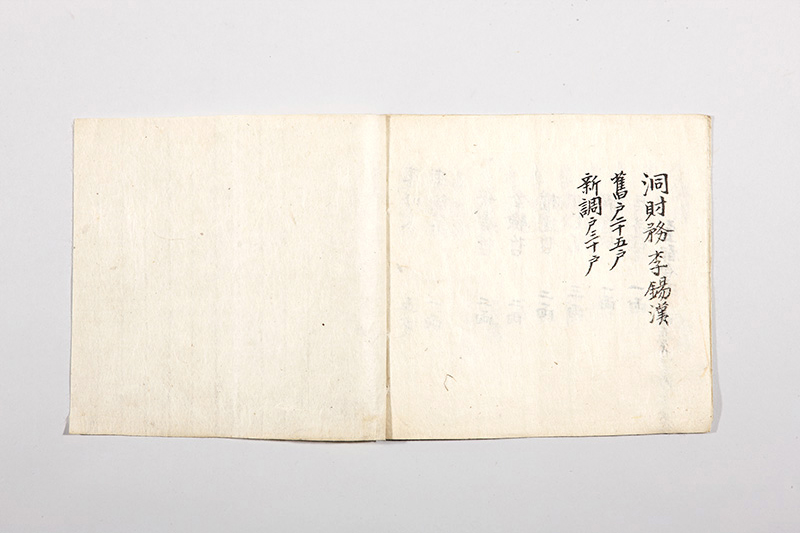 洞財務 李錫漢
舊戶二十五戶
新調戶三十戶